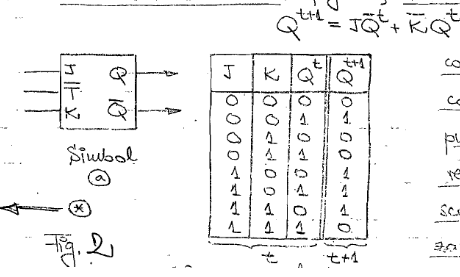 Q^{t+1} = JQ̄^t + K̄Q^t
J Q
T̄
K Q̄
Simbol
ⓐ
J K Q^t Q^{t+1}
0 0 0 0
0 0 1 1
0 1 0 0
0 1 1 0
1 0 0 1
1 0 1 1
1 1 0 1
1 1 1 0
t t+1
⊛
Fig. 2